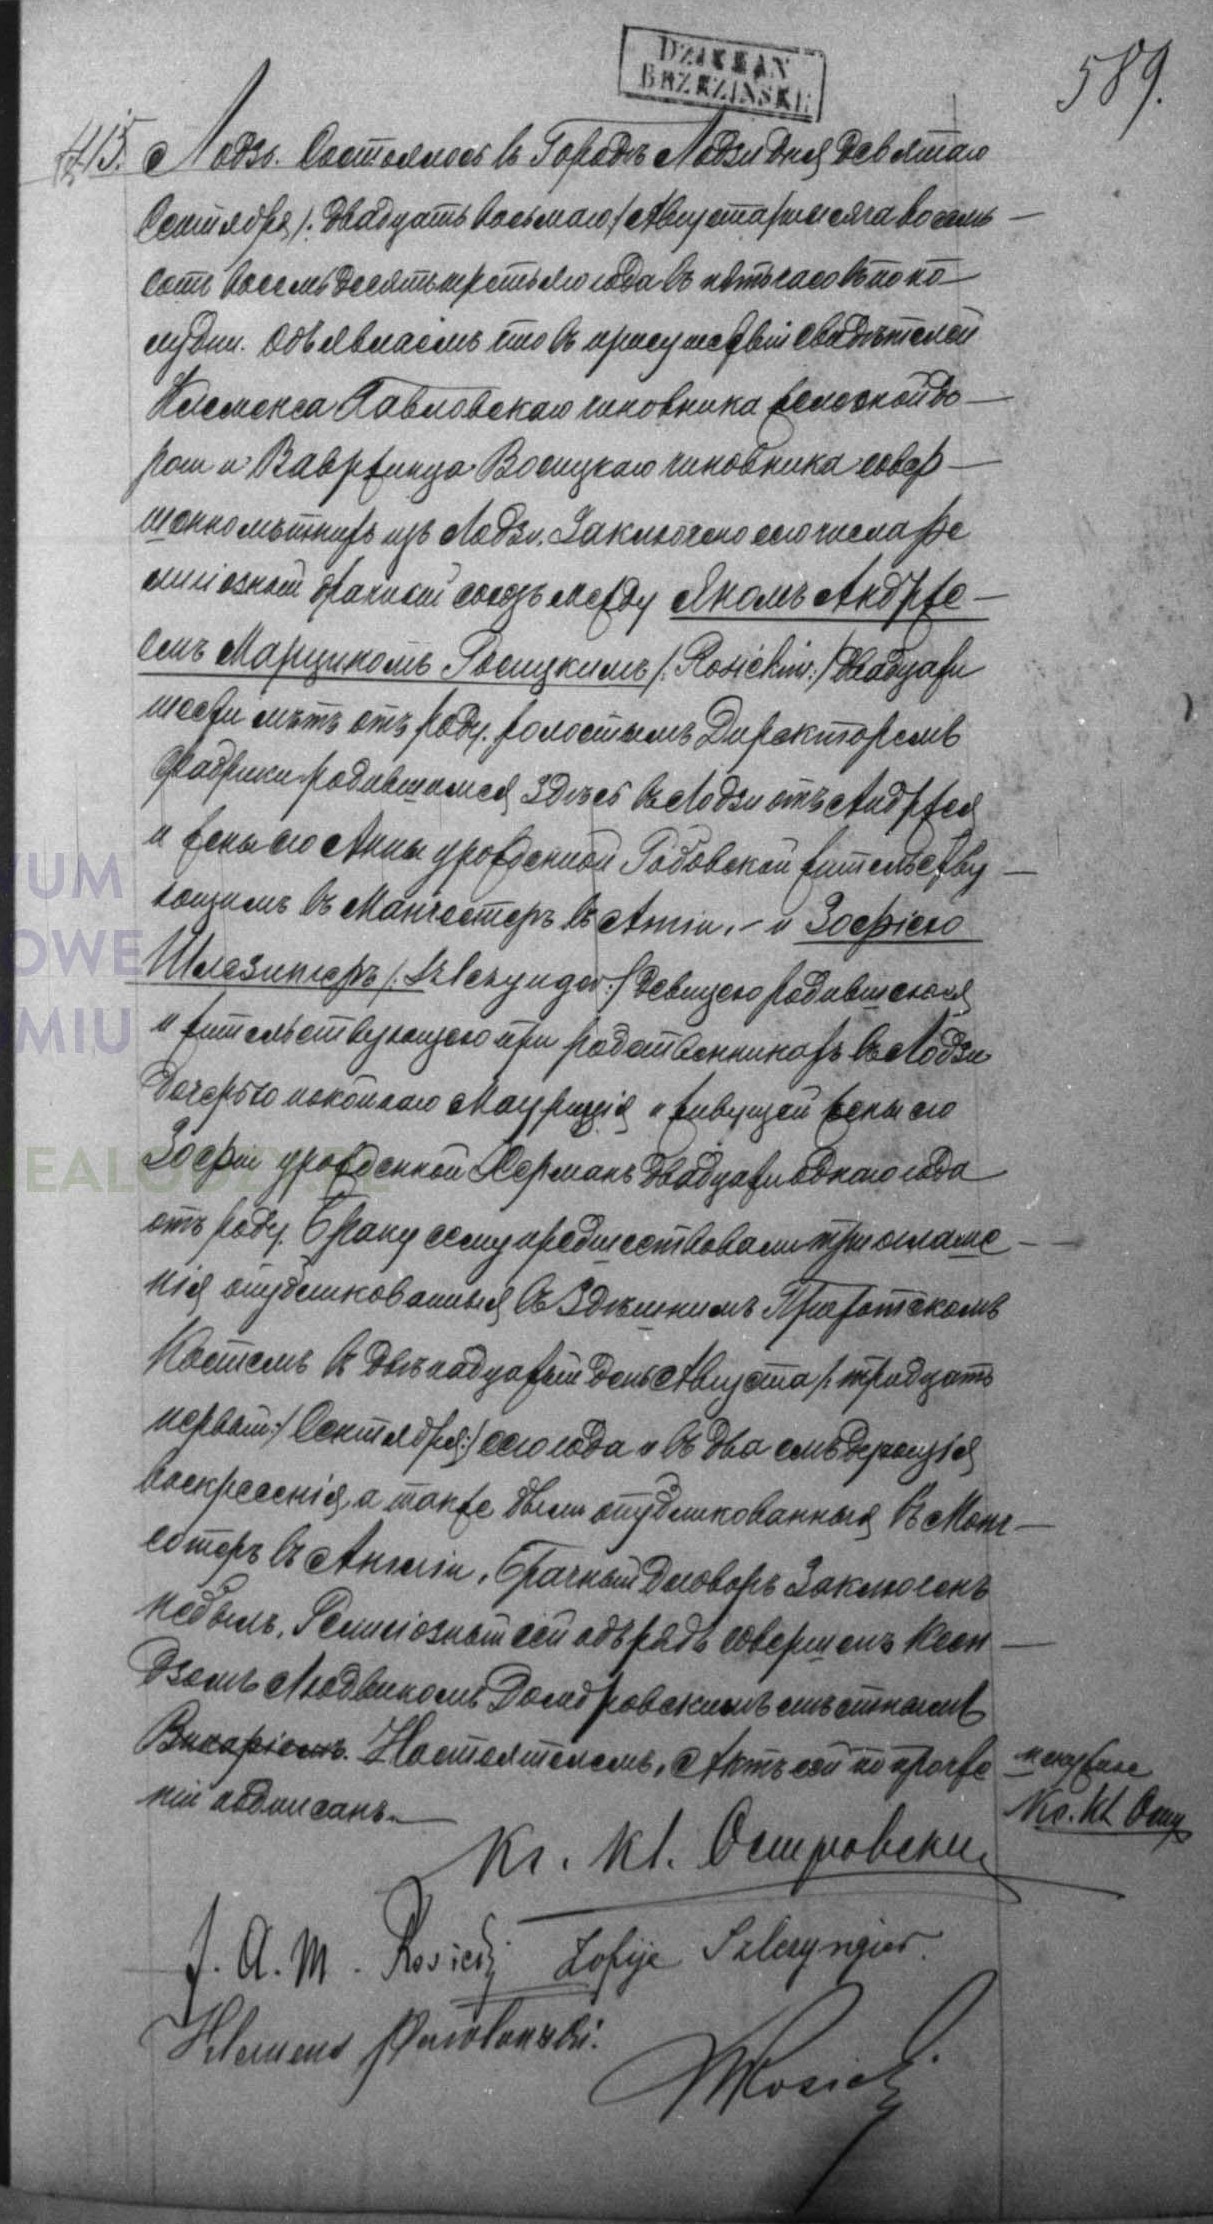 DZIEKAN
BRZEZINSKI
589.
415. Лодзь. Состоялось въ Городѣ Лодзи дня девятаго
Сентября /: двадцать восьмаго :/ Августа / тысяча восемь
сотъ восемьдесятъ третьяго года въ пять часовъ по по
лудни. Объявляемъ что въ присутствіи свидѣтелей
Клеменса Павловскаго чиновника железной до
роги и Вавржинца Росицкаго чиновника совер
шеннолѣтнихъ изъ Лодзи, Заключено сего числа ре
лигіозный брачный союзъ между Яномъ Андрже
емъ Марциномъ Росицкимъ /: Rosickim :/ двадцати
шести лѣтъ отъ роду, холостымъ Директоромъ
фабрики родившимся здѣсь въ Лодзи отъ Андржея
и жены его Анны урожденной жительству
ющимъ въ Манчестерѣ въ Англіи, - и Зофіею
Шлезингеръ /: Szlezynger :/ девицею родившеюся
и жительствующею при родственникахъ въ Лодзи
дочерью покойнаго Мауриція и живущей жены его
Зофіи урожденной Германъ двадцати одного года
отъ роду. Браку сему предшествовали три оглаше
нія опубликованныя въ Здѣшнимъ Приходскомъ
Костелѣ въ двѣнадцатый день Августа /: тридцать
первый :/ Сентября :/ сего года и въ два слѣдующія
воскресенія, а также были опубликованныя въ Манч
естерѣ въ Англіи. Брачный договоръ Заключенъ
небылъ. Религіозный сей обрядъ совершенъ Ксен
дзомъ Людвикомъ Домбровскимъ мѣстнымъ
Викаріемъ. Настоятелемъ. Актъ сей по прочте
ніи подписанъ.
Кс. Кл. Островски
Кс. Кл. Остр
J. A. M. Rosicki Zofija Szlezyngier.
Klemens Pawłowski.
W Rosicki